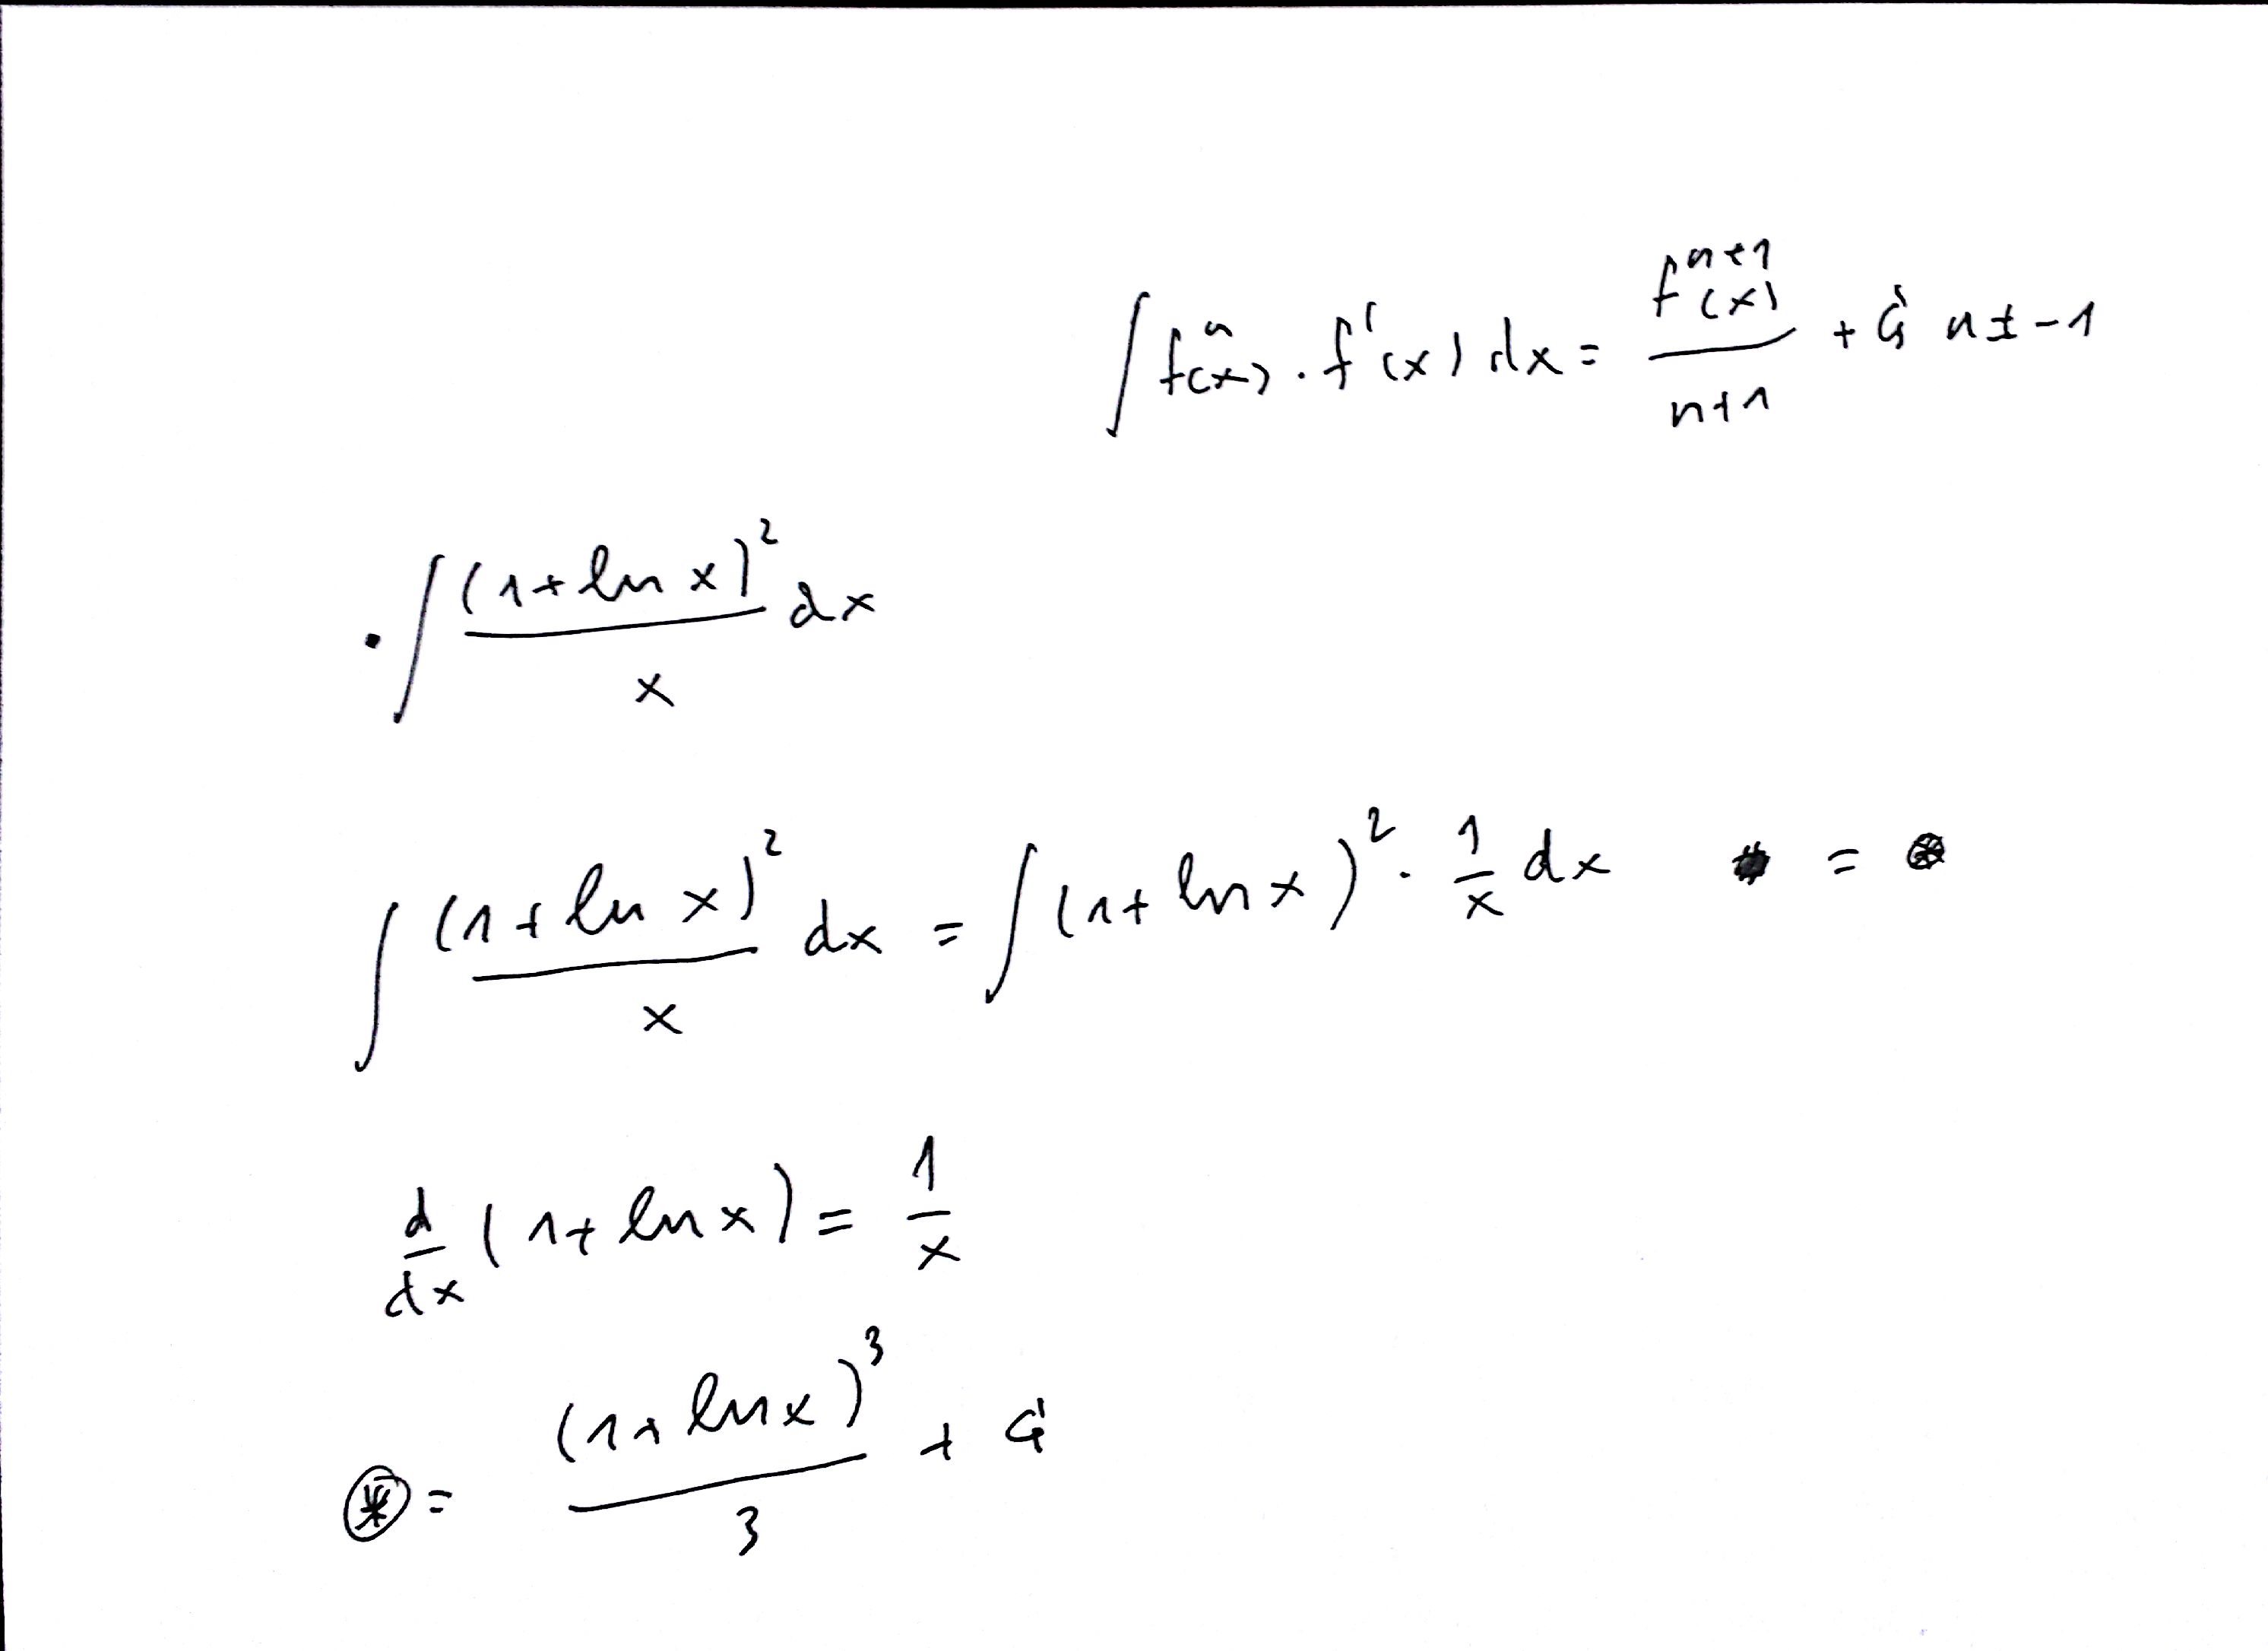 ∫ fⁿ(x) · f'(x) dx = fⁿ⁺¹(x) / n+1 + C, n ≠ -1
· ∫ (1+ln x)² / x dx
∫ (1+ln x)² / x dx = ∫ (1+ln x)² · 1/x dx = ⊛
d/dx (1+ln x) = 1/x
⊛ = (1+ln x)³ / 3 + C